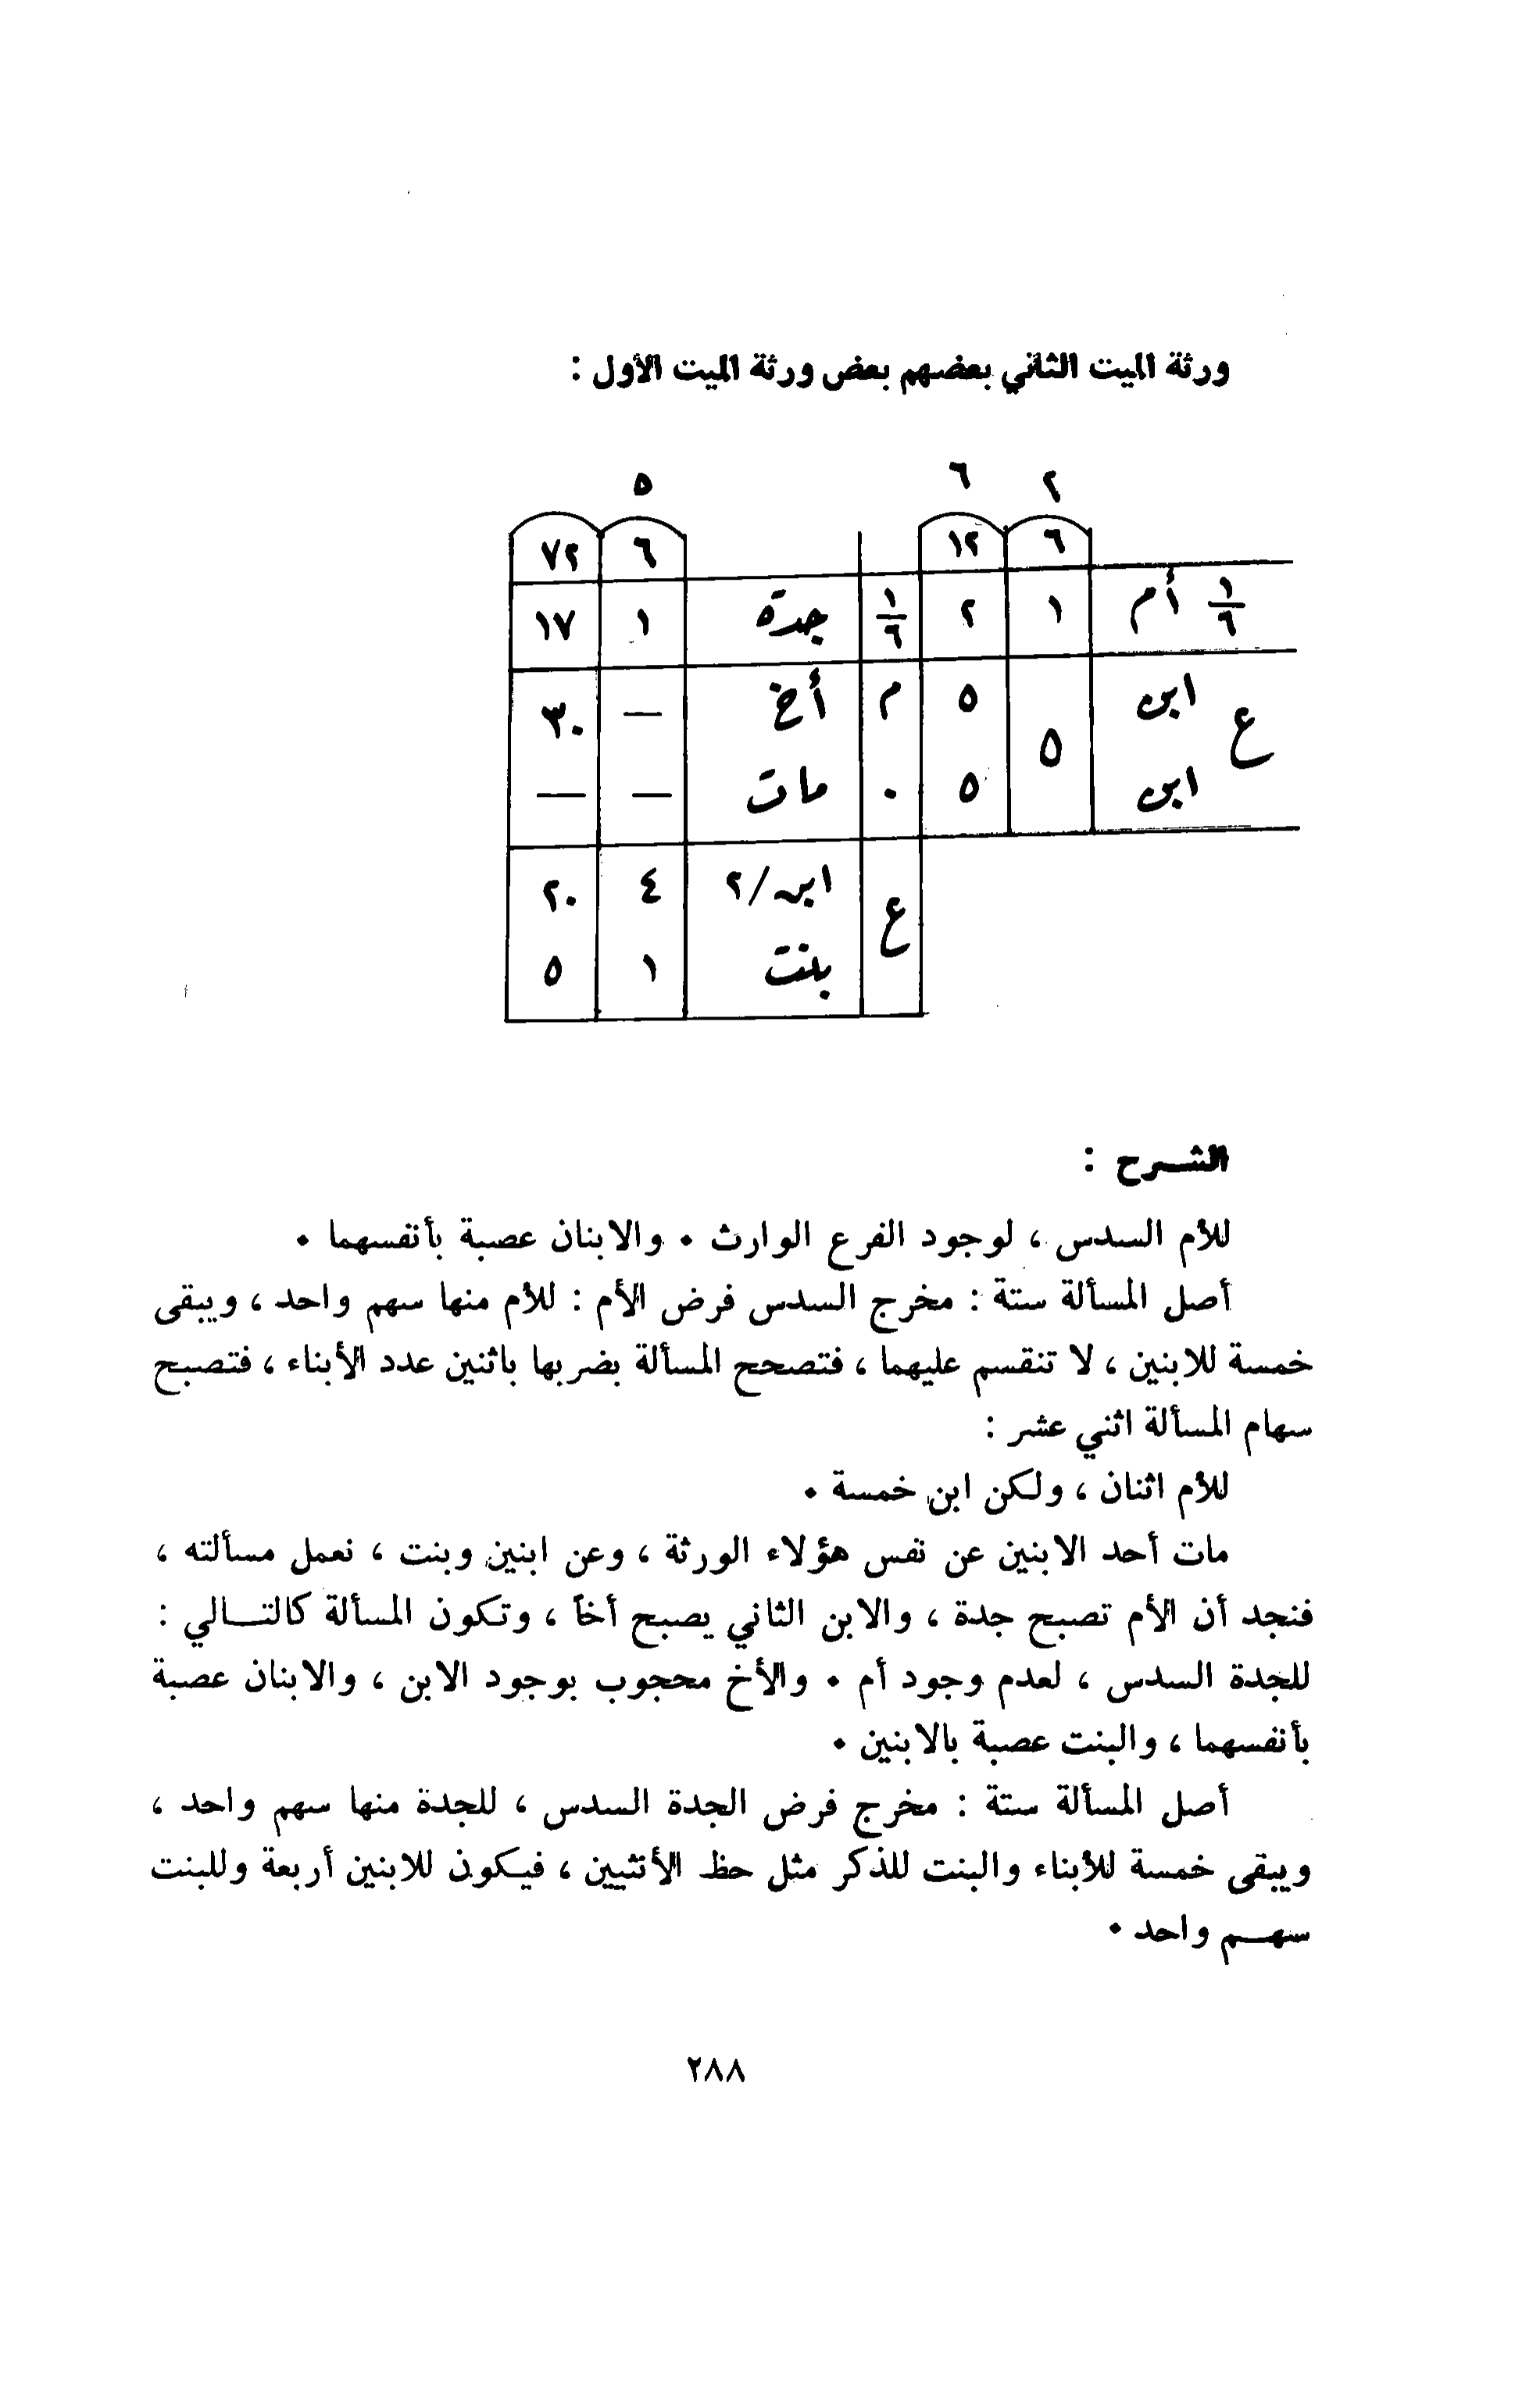 ورثة الميت الثاني بعضهم بعض ورثة الميت الأول :
٢ ٦ ٥
٦ ١٢ ٦ ٧٢
١/٦ أم ١ ٢ ١/٦ جدة ١ ١٧
ع ابن ٥ ٥ م أخ — ٣٠
ابن ٥ ٠ مات — —
ع ابن/٢ ٤ ٢٠
بنت ١ ٥
الشرح :
للأم السدس ، لوجود الفرع الوارث ٠ والابنان عصبة بأنفسهما ٠
أصل المسألة ستة : مخرج السدس فرض الأم : للأم منها سهم واحد ، ويبقى
خمسة للابنين ، لا تنقسم عليهما ، فتصحح المسألة بضربها باثنين عدد الأبناء ، فتصبح
سهام المسألة اثني عشر :
للأم اثنان ، ولكن ابن خمسة ٠
مات أحد الابنين عن نفس هؤلاء الورثة ، وعن ابنين وبنت ، نعمل مسألته ،
فنجد أن الأم تصبح جدة ، والابن الثاني يصبح أخاً ، وتكون المسألة كالتالي :
للجدة السدس ، لعدم وجود أم ٠ والأخ محجوب بوجود الابن ، والابنان عصبة
بأنفسهما ، والبنت عصبة بالابنين ٠
أصل المسألة ستة : مخرج فرض الجدة السدس ، للجدة منها سهم واحد ،
ويبقى خمسة للأبناء والبنت للذكر مثل حظ الأنثيين ، فيكون للابنين أربعة وللبنت
سهم واحد ٠
٢٨٨